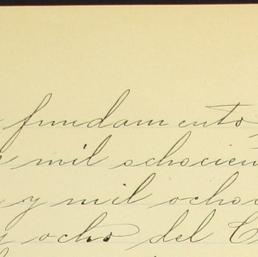 fundamento,
mil schocien
y mil ocho
y ocho del C